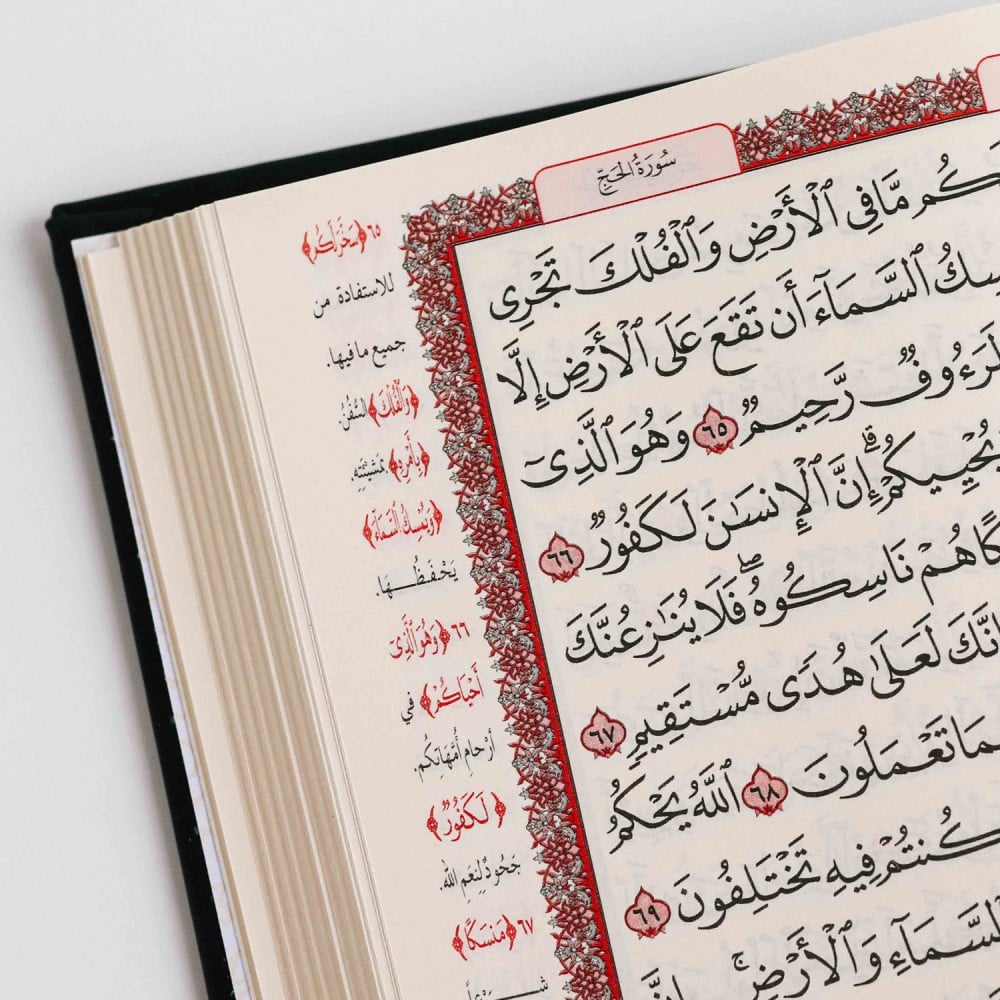 سُورَةُ الحَجِّ
كُم مَّا فِى ٱلْأَرْضِ وَٱلْفُلْكَ تَجْرِى
سِكُ ٱلسَّمَآءَ أَن تَقَعَ عَلَى ٱلْأَرْضِ إِلَّا
لَرَءُوفٌ رَّحِيمٌ ٦٥ وَهُوَ ٱلَّذِىٓ
يُحْيِيكُمْ ۗ إِنَّ ٱلْإِنسَٰنَ لَكَفُورٌ ٦٦
كًا هُمْ نَاسِكُوهُ ۖ فَلَا يُنَٰزِعُنَّكَ
إِنَّكَ لَعَلَىٰ هُدًى مُّسْتَقِيمٍ ٦٧
مَا تَعْمَلُونَ ٦٨ ٱللَّهُ يَحْكُمُ
كُنتُمْ فِيهِ تَخْتَلِفُونَ ٦٩
ٱلسَّمَآءِ وَٱلْأَرْضِ ۚ إِنَّ
٦٥ ﴿سَخَّرَ لَكُم﴾
للاستفادة من
جميع ما فيها.
﴿وَٱلْفُلْكَ﴾ السُّفُنُ.
﴿بِأَمْرِهِ﴾ بمَشِيئَتِهِ.
﴿وَيُمْسِكُ ٱلسَّمَآءَ﴾
يَحْفَظُهَا.
٦٦ ﴿وَهُوَ ٱلَّذِى
أَحْيَاكُمْ﴾ في
أرْحَامِ أُمَّهَاتِكُم.
﴿لَكَفُورٌ﴾
جَحُودٌ لِنِعَمِ الله.
٦٧ ﴿مَنسَكًا﴾